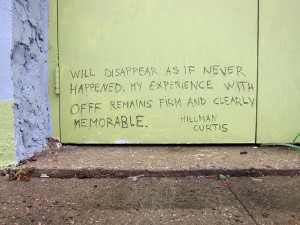 WILL DISAPPEAR AS IF NEVER
HAPPENED. MY EXPERIENCE WITH
OFFF REMAINS FIRM AND CLEARLY
MEMORABLE. HILLMAN
CURTIS